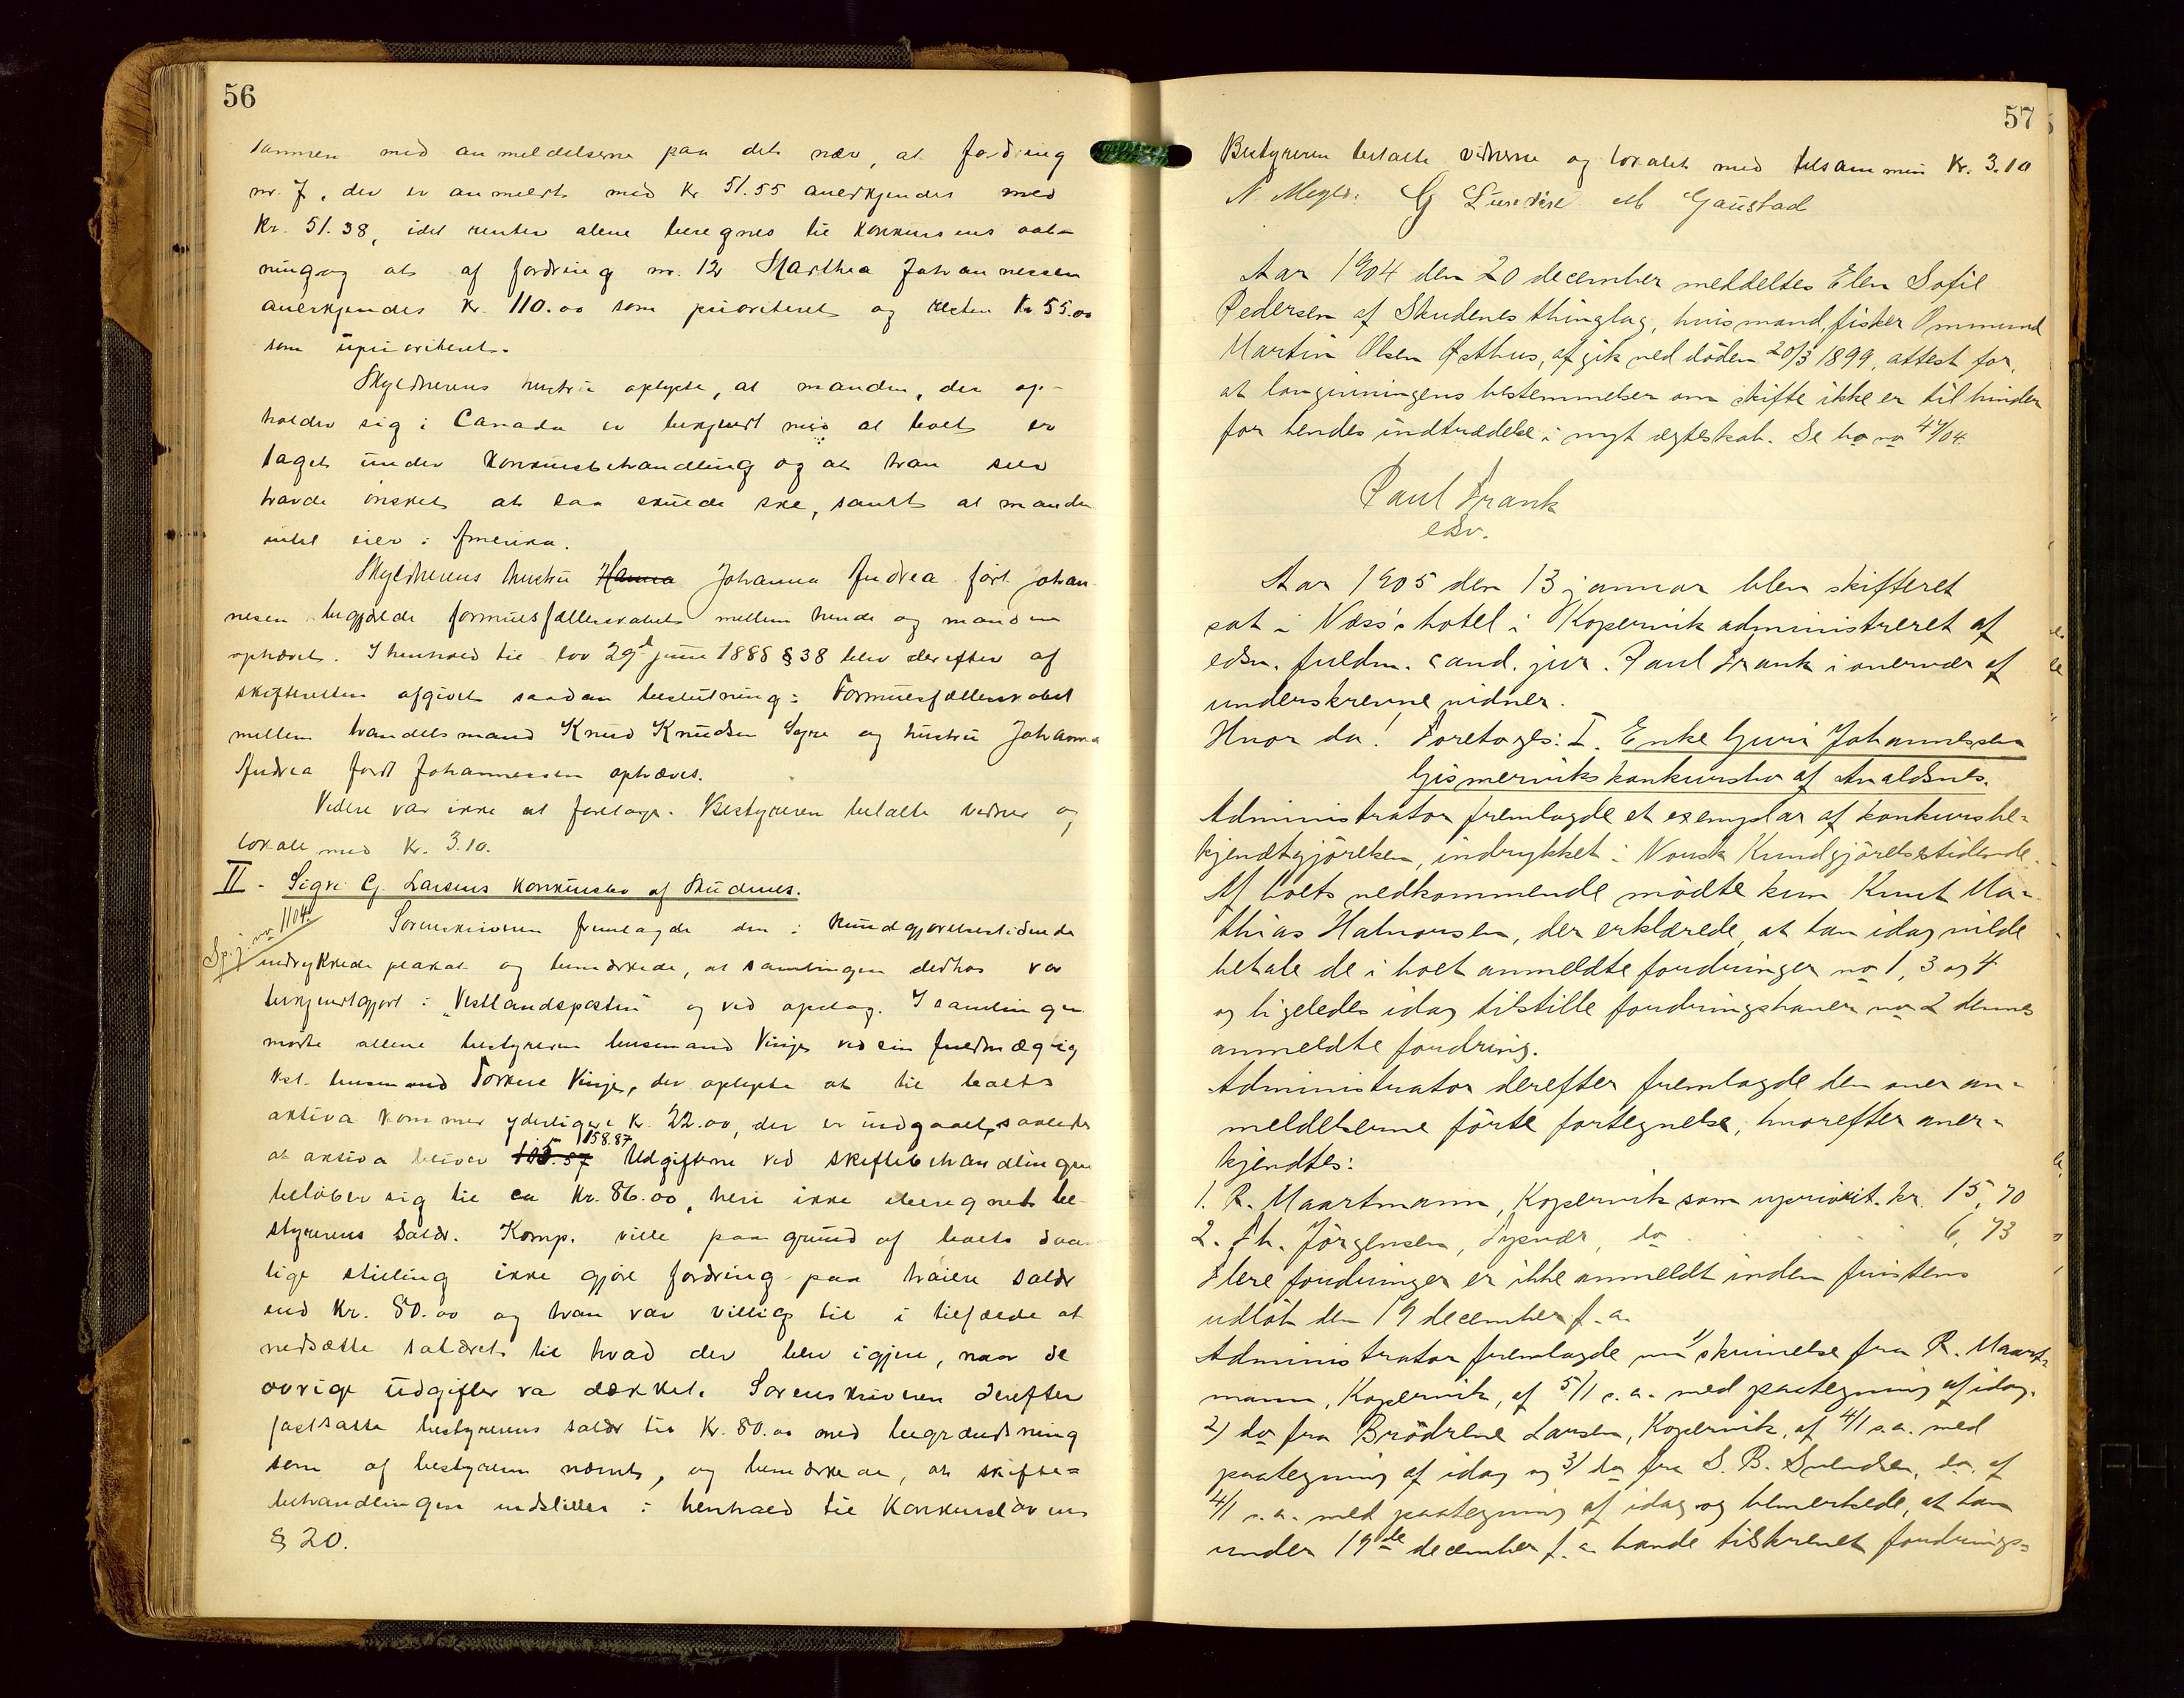 56
sammen med anmeldelserne paa det nær, at fordring
nr. 7, der er anmeldt med kr. 51.55 anerkjendes med
kr. 51.38, idet renter alene beregnes til konkursens aab-
ning og at af fordring nr. 12 Marthea Johannessen
anerkjendes kr. 110.00 som prioriteret og resten kr 55.00
som uprioriteret.
Skyldnerens hustru oplyste, at manden, der op-
holder sig i Canada er bekjendt med at boet er
taget under konkursbehandling og at han selv
havde ønsket at saa skulde ske, samt at manden
intet eier i Amerika.
Skyldnerens hustru Hanna Johanna Andrea født Johan-
nesen begjærede formuesfællesskabet mellem hende og manden
ophævet. I henhold til lov 29de juni 1888 § 38 blev derefter af
skifteretten afgivet saadan beslutning: Formuesfællesskabet
mellem handelsmand Knud Knudsen Syre og hustru Johanna
Andrea født Johannessen ophæves.
Videre var ikke at foretage. Bestyreren betalte vidner og
lokale med kr. 3.10.
II. Sigv. G. Larsens konkursbo af Skudenes.
Sp.j. no. 1104
Sorenskriveren fremlagde den i Kundgjørelsestidende
indrykkede plakat og bemærkede, at samlingen desuden var
bekjendtgjort i "Vestlandsposten" og ved opslag. I samlingen
mødte allene bestyreren lensmand Vinje ved sin fuldmægtig
kst. lensmand Torkel Vinje, der oplyste at til boets
aktiva kommer yderligere kr. 22.00, der er indgaaet, saaledes
158.87
at aktiva bliver Udgifterne ved skiftebehandlingen
beløber sig til ca kr. 86.00, heri ikke iberegnet be-
styrerens salær. Komp. ville paa grund af boets daar-
lige stilling ikke gjøre fordring paa høiere salær
end kr. 80.00 og han var villig til i tilfælde at
nedsætte salæret til hvad der blev igjen, naar de
øvrige udgifter var dækket. Sorenskriveren derefter
fastsatte bestyrerens salær til kr. 80.00 med begrændsning
som af bestyreren nævnt, og bemærkede, at skifte-
behandlingen indstilles i henhold til Konkurslovens
§ 20.
57
Bestyreren betalte vidnerne og lokalet med tilsammen kr. 3.10
N Meyer. G Lunddse M Gaustad
Aar 1904 den 20 december meddeltes Elen Sofie
Pedersen af Skudenes thinglag, hvis mand, fisker Ommund
Martin Olsen Østhus, afgik ved døden 20/3 1899, attest for,
at lovgivningens bestemmelser om skifte ikke er til hinder
for hendes indtrædelse i nyt ægteskab. Se bo no 47/04.
Paul Frank
edsv.
Aar 1905 den 13 januar blev skifteret
sat i Næss's hotel i Kopervik administreret af
edsv. fuldm. cand. jur. Paul Frank i overvær af
underskrevne vidner.
Hvor da! Foretoges: I. Enke Guri Johannessen
Gismerviks konkursbo af Avaldsnes.
Administrator fremlagde et exemplar af konkursbe-
kjendtgjørelsen, indrykket i Norsk Kundgjørelsestidende.
Af boets vedkommende mødte kun Knut Ma-
thias Halvorsen, der erklærede, at han idag vilde
betale de i boet anmeldte fordringer no 1, 3 og 4
og ligeledes idag tilstille fordringshaver no 2 dennes
anmeldte fordring.
Administrator derefter fremlagde den over an-
meldelserne førte fortegnelse, hvorefter aner-
kjendtes:
1. R. Maartmann, Kopervik som upriorit. kr. 15,70
2. Th. Jørgensen, Tysvær, do - - 6,73
Flere fordringer er ikke anmeldt inden fristens
udløb den 19 december f. a.
Administrator fremlagde nu 1/ skrivelse fra R. Maart-
mann, Kopervik, af 5/1 s. a. med paategning af idag.
2) do fra Brødrene Larsen, Kopervik, af 4/1 s.a. med
paategning af idag og 3/ do fra S. B. Svendsen, do, af
4/1 s. a. med paategning af idag og bemerkede, at han
under 19de december f. a havde tilskrevet fordrings-